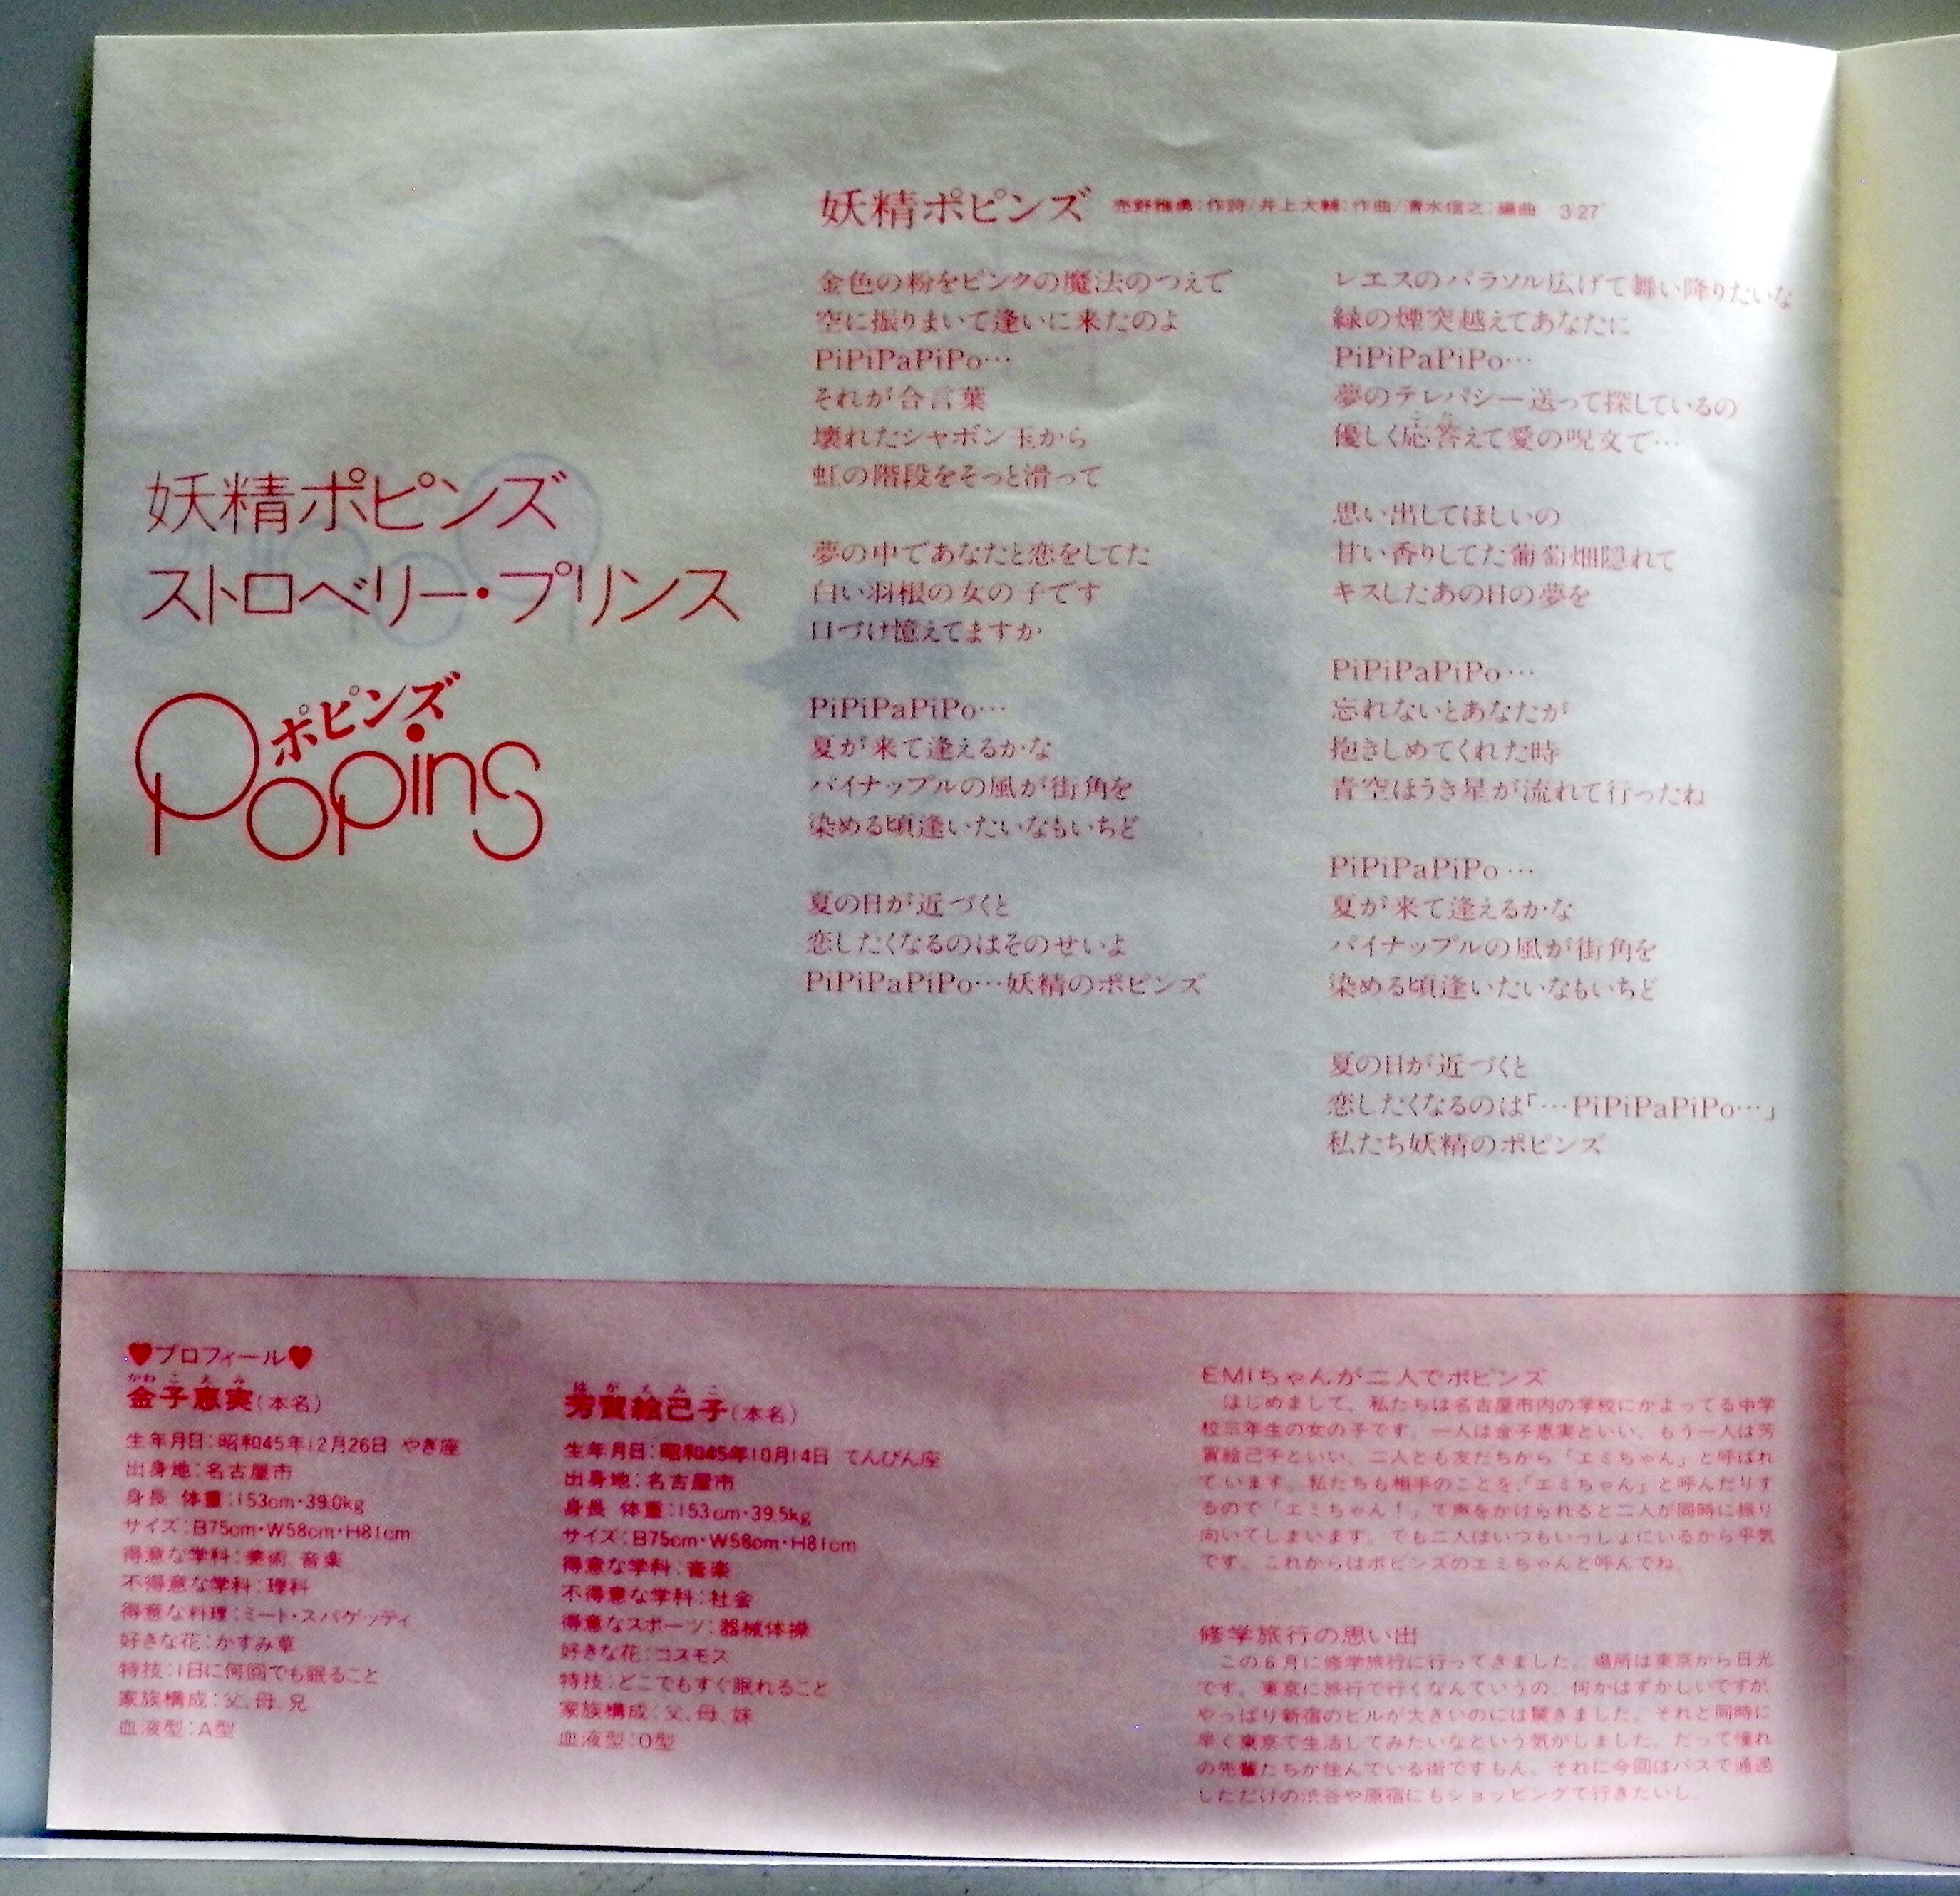 妖精ポピンズ
ストロベリー・プリンス
ポピンズ
Popins
妖精ポピンズ 売野雅勇：作詩/井上大輔：作曲/清水信之：編曲 3'27"
金色の粉をピンクの魔法のつえで
空に振りまいて逢いに来たのよ
PiPiPaPiPo…
それが合言葉
壊れたシャボン玉から
虹の階段をそっと滑って
夢の中であなたと恋をしてた
白い羽根の女の子です
口づけ憶えてますか
PiPiPaPiPo…
夏が来て逢えるかな
パイナップルの風が街角を
染める頃逢いたいなもいちど
夏の日が近づくと
恋したくなるのはそのせいよ
PiPiPaPiPo…妖精のポピンズ
レエスのパラソル広げて舞い降りたいな
緑の煙突越えてあなたに
PiPiPaPiPo…
夢のテレパシー送って探しているの
優しく応答えて愛の呪文で…
思い出してほしいの
甘い香りしてた葡萄畑隠れて
キスしたあの日の夢を
PiPiPaPiPo…
忘れないとあなたが
抱きしめてくれた時
青空ほうき星が流れて行ったね
PiPiPaPiPo…
夏が来て逢えるかな
パイナップルの風が街角を
染める頃逢いたいなもいちど
夏の日が近づくと
恋したくなるのは「…PiPiPaPiPo…」
私たち妖精のポピンズ
♥プロフィール♥
金子恵実(本名)
生年月日：昭和45年12月26日 やぎ座
出身地：名古屋市
身長 体重：153cm・39.0kg
サイズ：B75cm・W58cm・H81cm
得意な学科：美術、音楽
不得意な学科：理科
得意な料理：ミート・スパゲッティ
好きな花：かすみ草
特技：1日に何回でも眠ること
家族構成：父、母、兄
血液型：A型
はがえみこ
芳賀絵己子(本名)
生年月日：昭和45年10月14日 てんびん座
出身地：名古屋市
身長 体重：153cm・39.5kg
サイズ：B75cm・W58cm・H81cm
得意な学科：音楽
不得意な学科：社会
得意なスポーツ：器械体操
好きな花：コスモス
特技：どこでもすぐ眠れること
家族構成：父、母、妹
血液型：O型
EMIちゃんが二人でポピンズ
はじめまして、私たちは名古屋市内の学校にかよってる中学
校三年生の女の子です。一人は金子恵実といい、もう一人は芳
賀絵己子といい、二人とも友だちから「エミちゃん」と呼ばれ
ています。私たちも相手のことを、「エミちゃん」と呼んだりす
るので「エミちゃん！」て声をかけられると二人が同時に振り
向いてしまいます。でも二人はいつもいっしょにいるから平気
です。これからはポピンズのエミちゃんと呼んでね。
修学旅行の思い出
この6月に修学旅行に行ってきました。場所は東京から日光
です。東京に旅行で行くなんていうの、何かはずかしいですが、
やっぱり新宿のビルが大きいのには驚きました。それと同時に
早く東京で生活してみたいなという気がしました。だって憧れ
の先輩たちが住んでいる街ですもん。それに今回はバスで通過
しただけの渋谷や原宿にもショッピングで行きたいし。